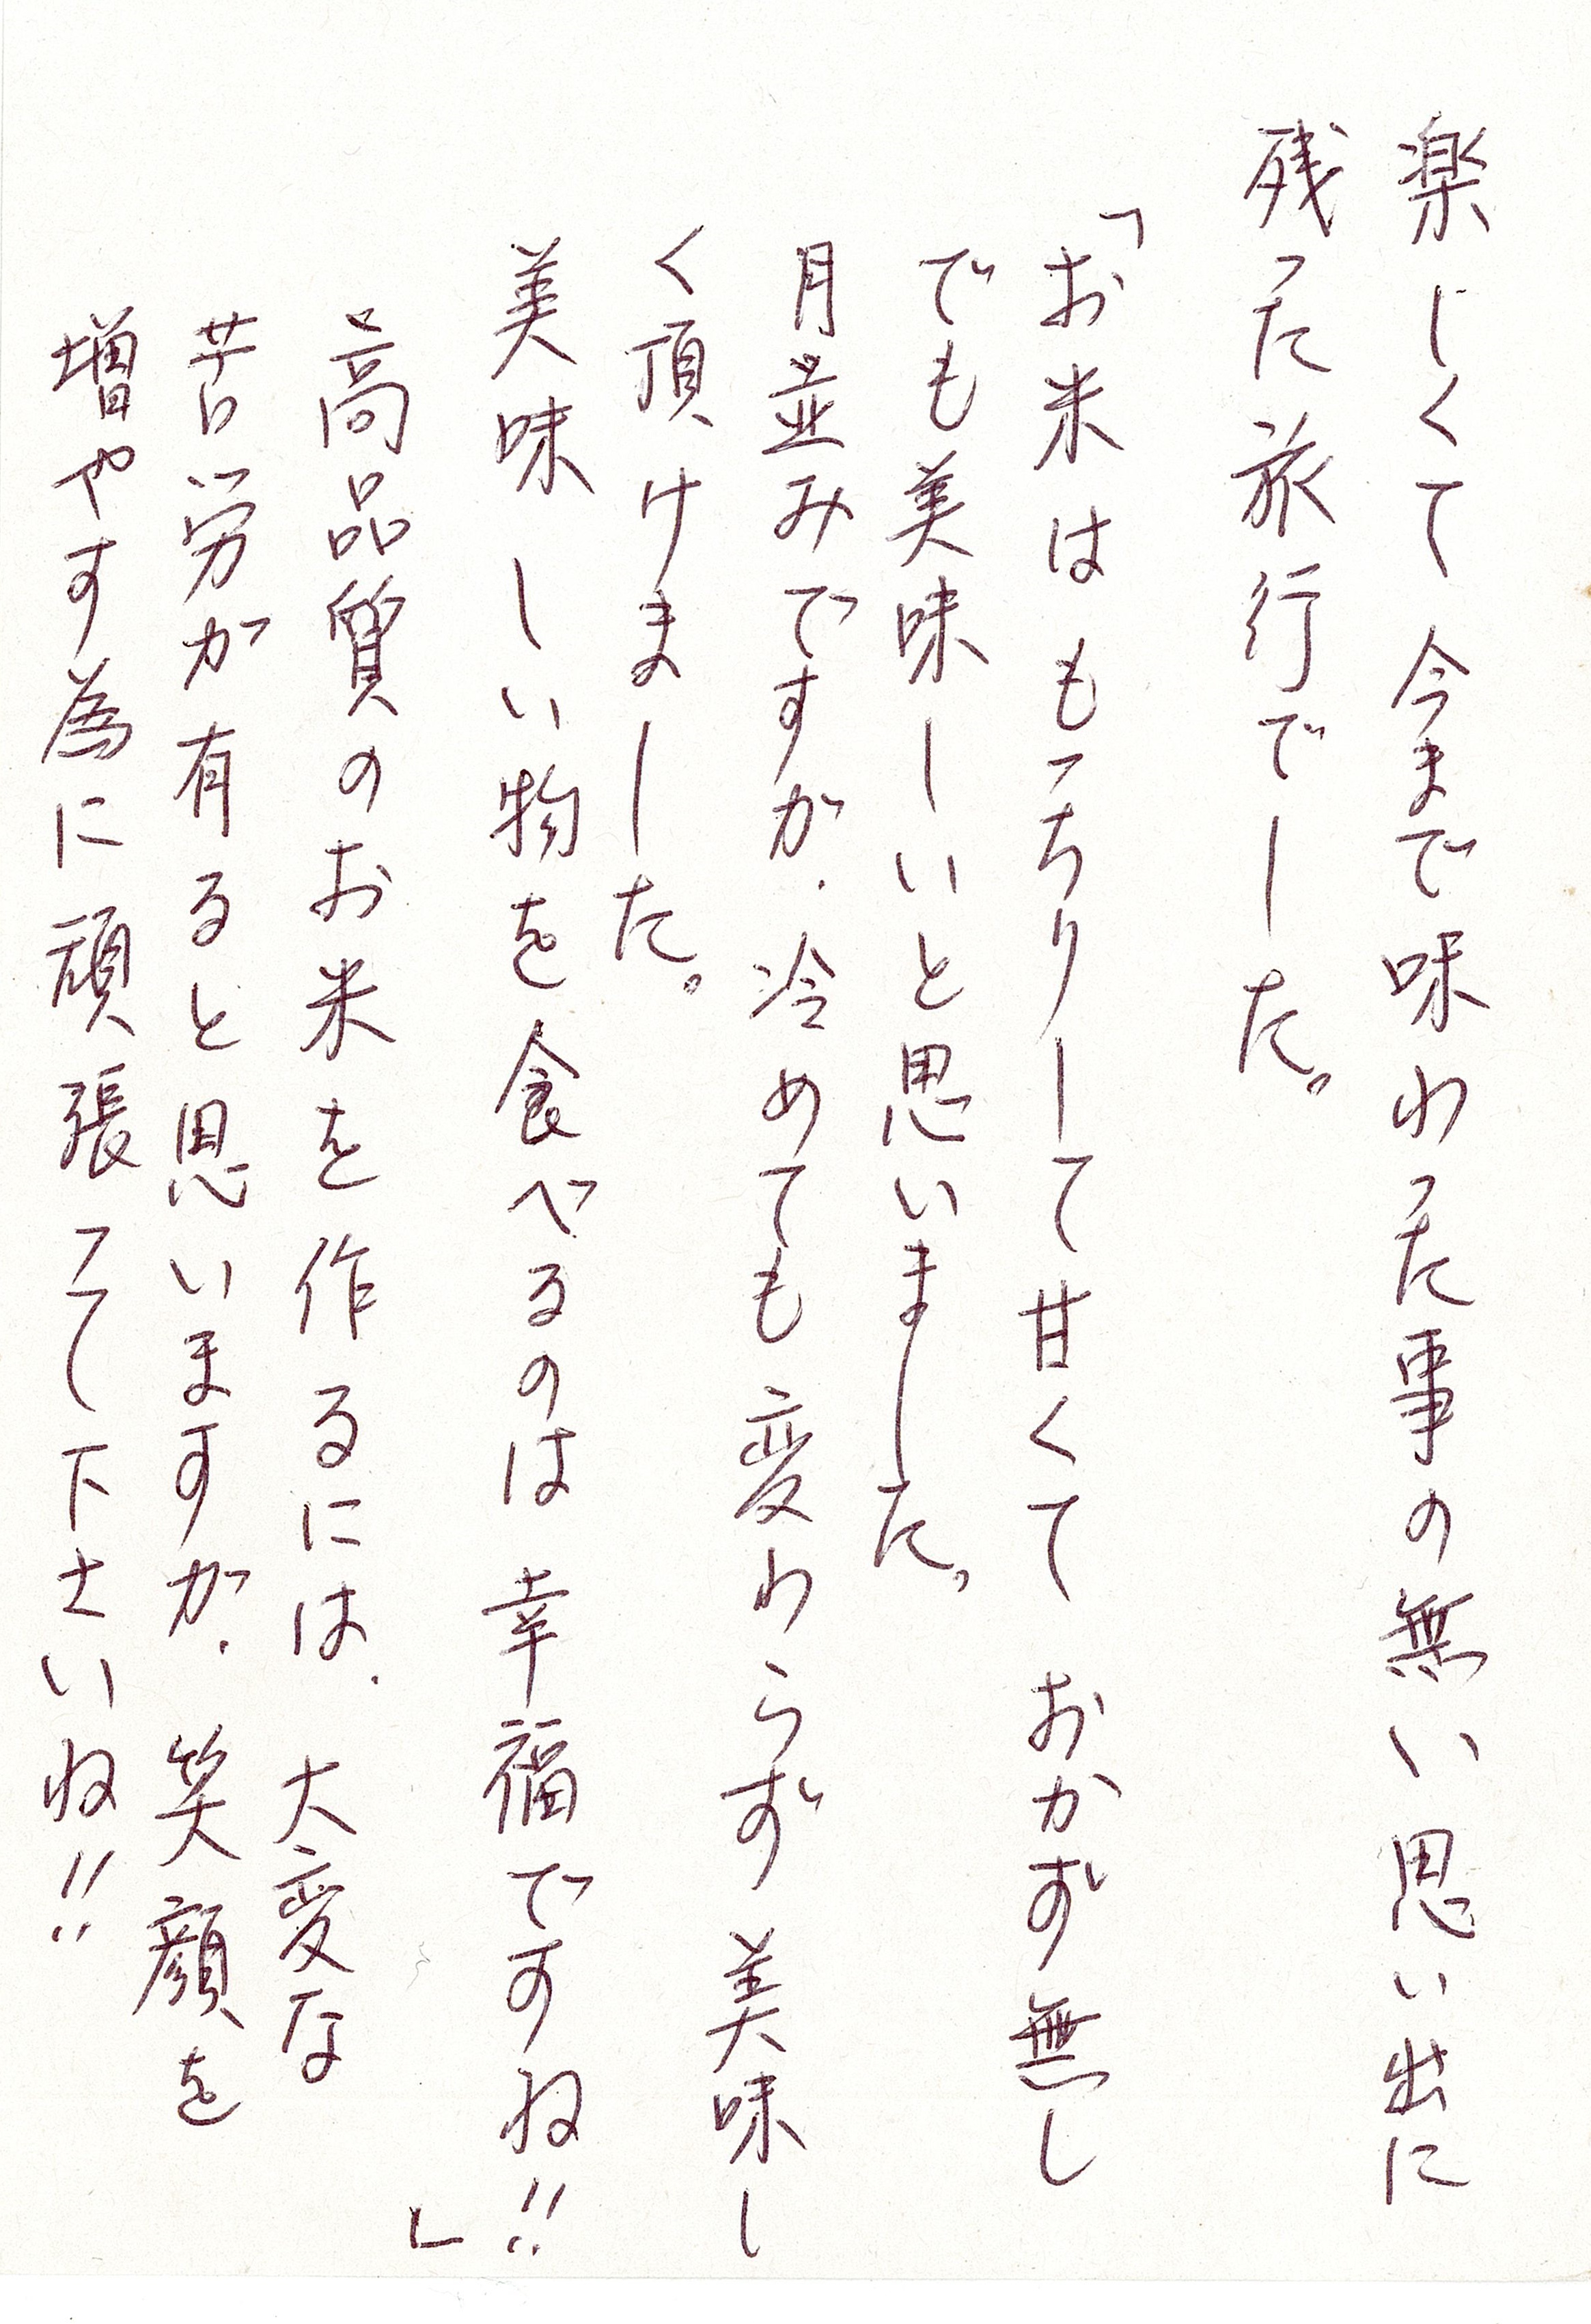 楽しくて 今まで味わった事の無い思い出に
残った旅行でした。
「お米は もっちりして甘くて おかず無し
でも美味しいと思いました。
月並みですが、冷めても 変わらず 美味し
く頂けました。
美味しい物を食べるのは 幸福ですね!!」
高品質のお米を作るには、大変な
苦労が有ると思いますが、笑顔を
増やす為に頑張って下さいね!!